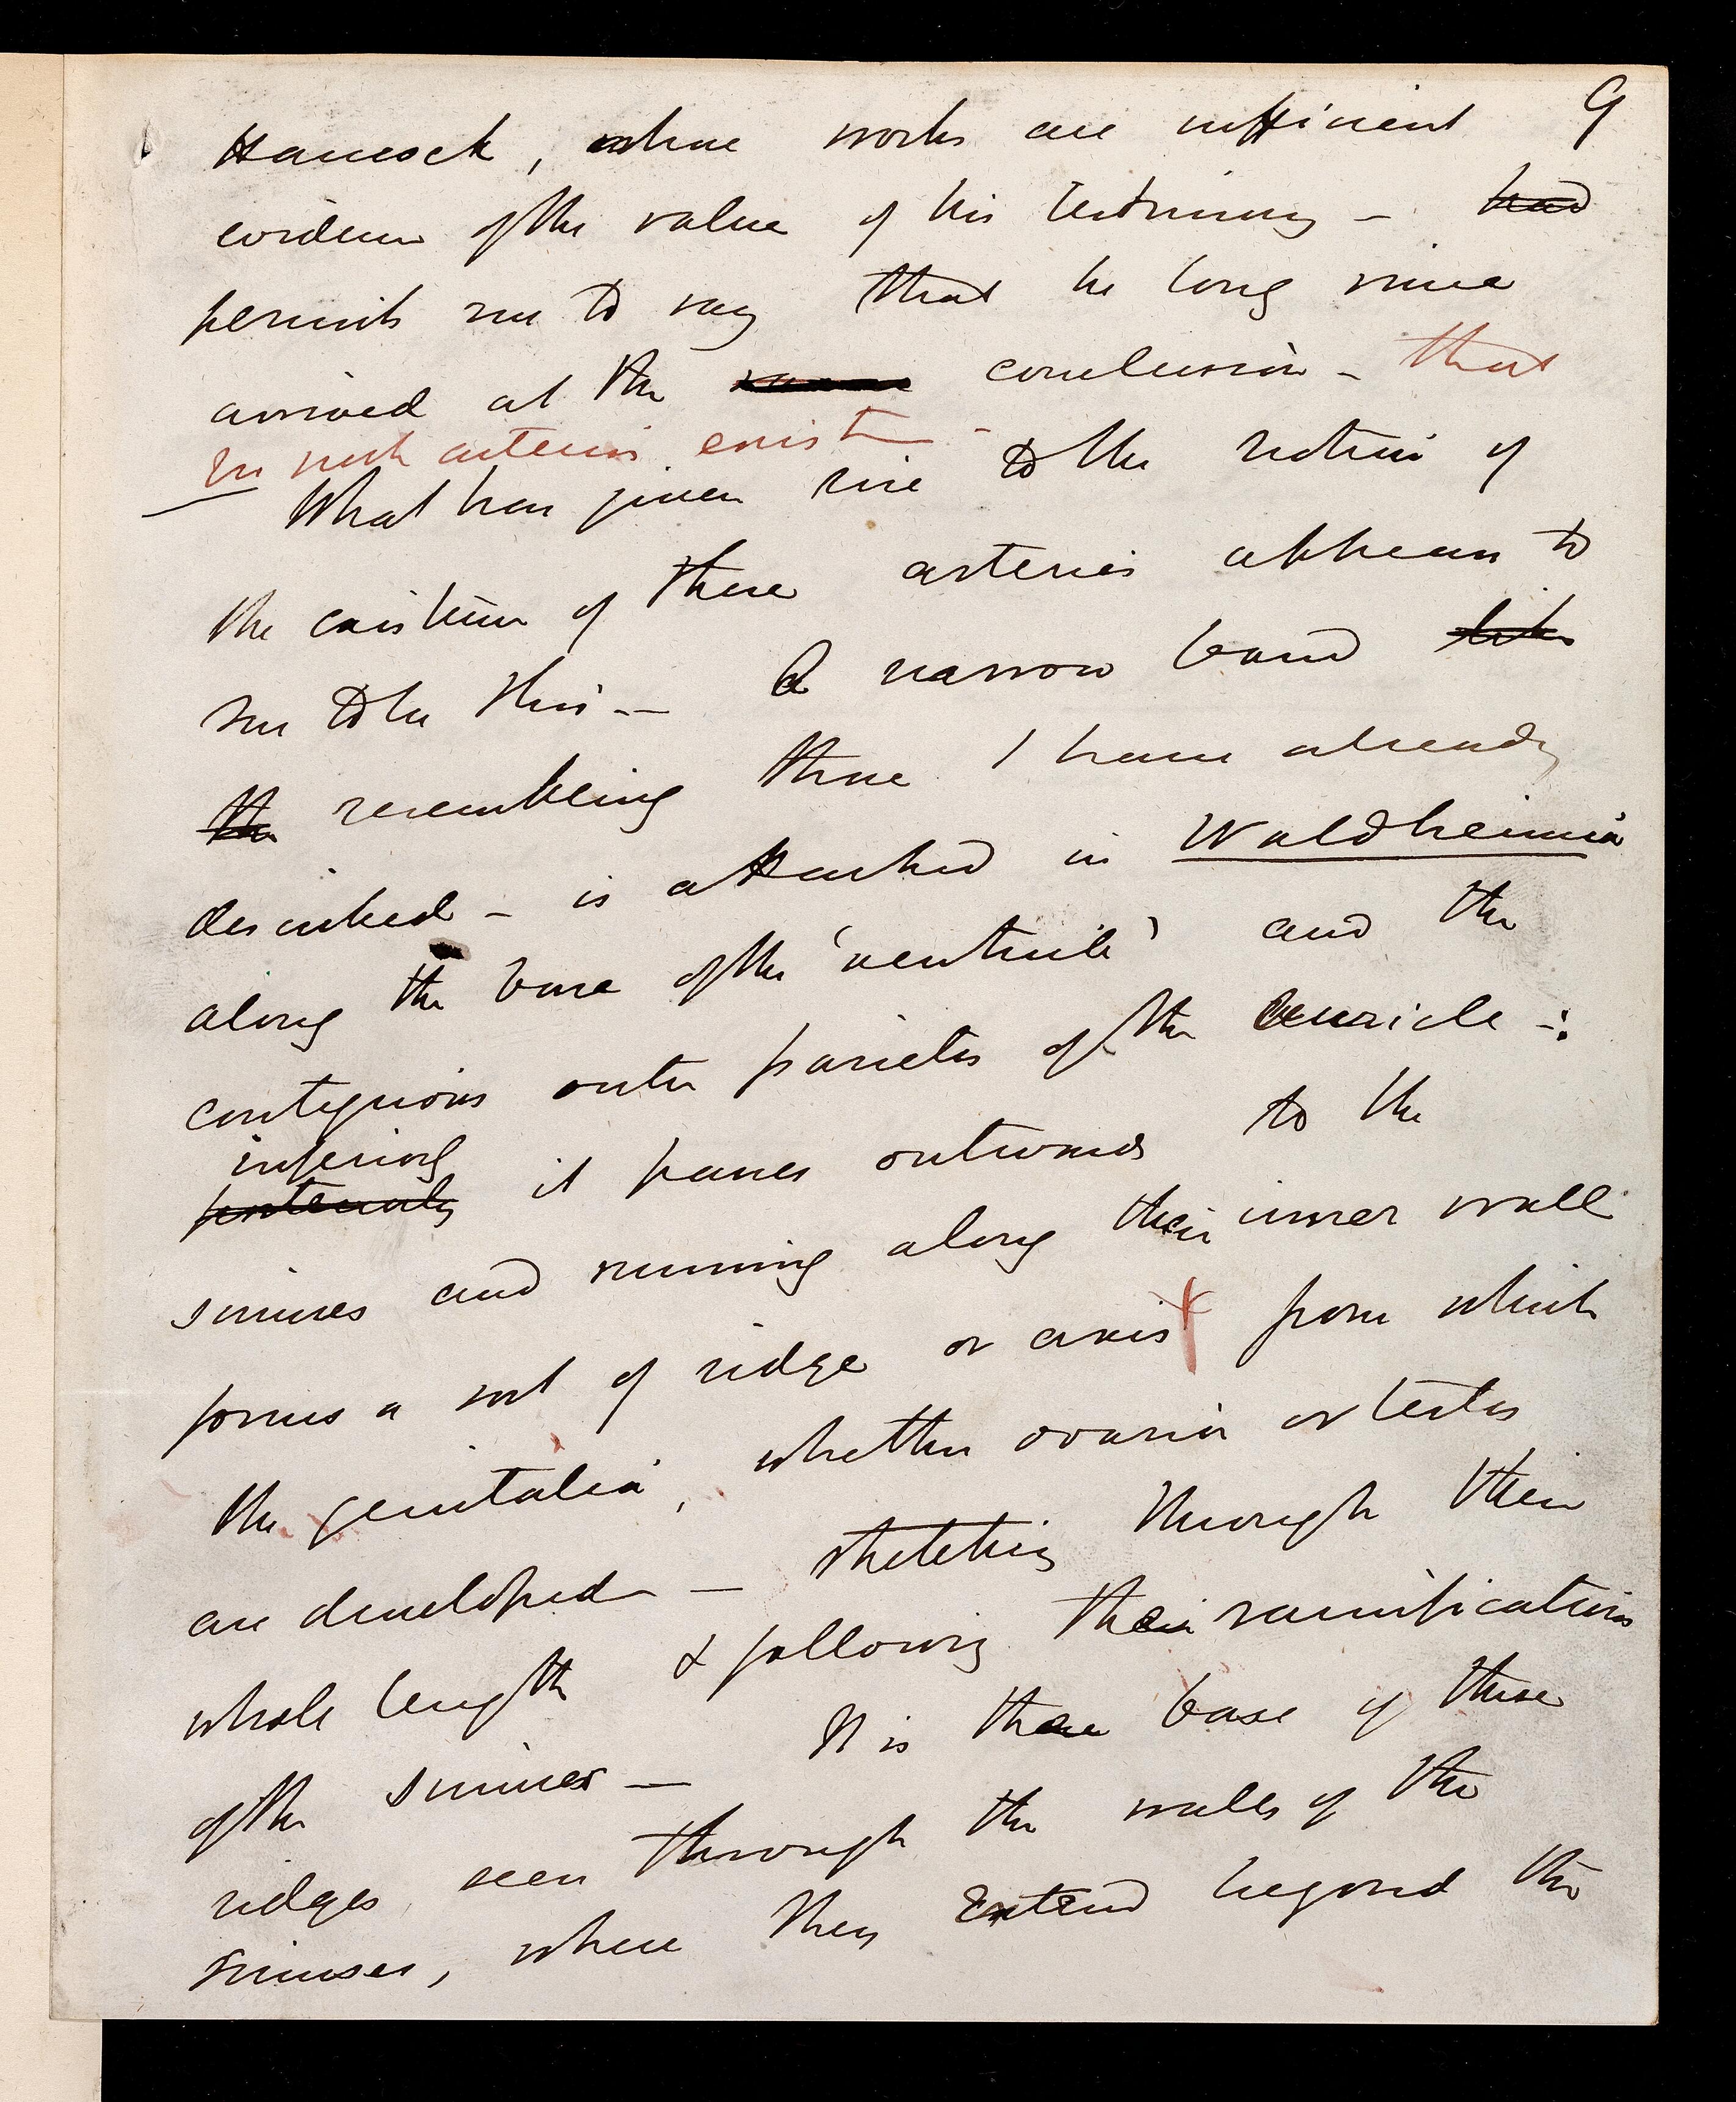 9
Hancock, whose works are sufficient
evidence of the value of his testimony - had
permits me to say that he long since
arrived at the conclusion - that
no such arteries exist -
What has given rise to the notion of
the existence of these arteries appears to
me to be this - A narrow band like
the resembling those I have already
described - is attached in Waldheimia
along the base of the 'ventricle' and the
contiguous outer parietes of the auricle -:
inferiorly
posteriorly it passes outwards to the
sinuses and running along their inner wall
forms a sort of ridge or axis from which
the genitalia, whether ovaria or testes
are developed - stretching through their
whole length & following their ramifications
of the sinuses - It is the base of these
ridges, seen through the walls of the
sinuses, where they extend beyond the